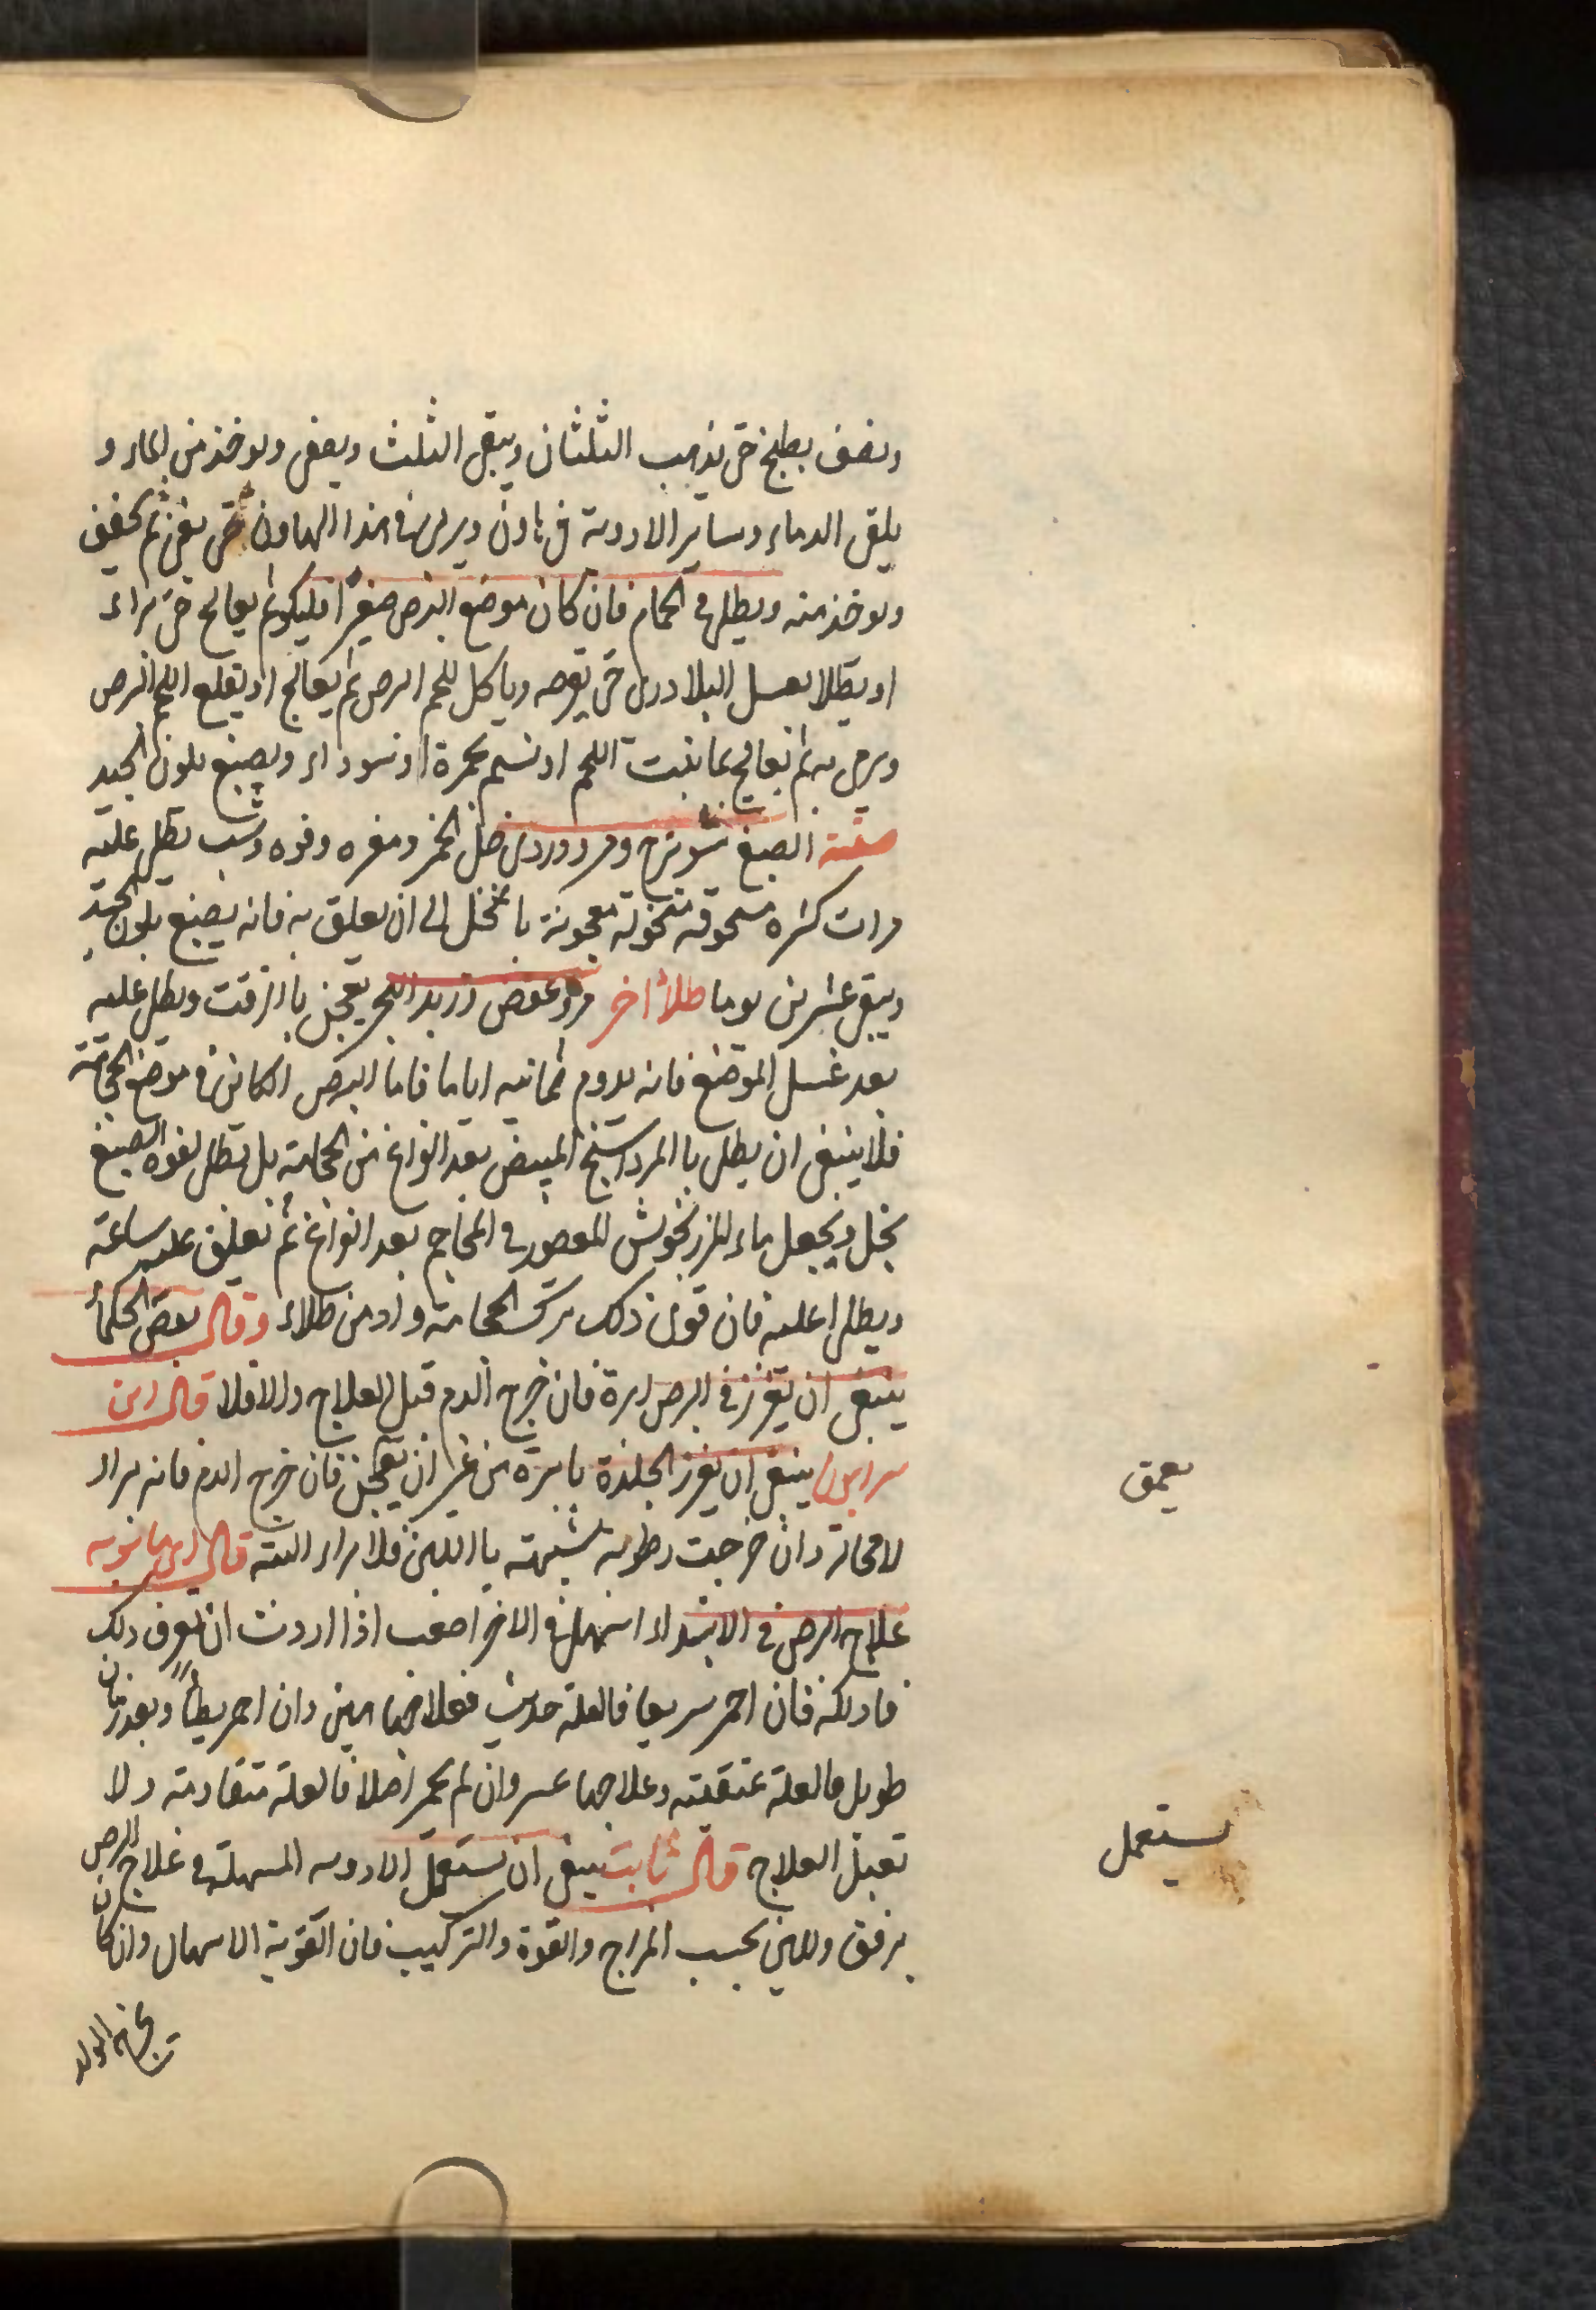 ونصف يطبخ حتى يذهب الثلثان ويبقى الثلث ويصفى ويوخذ من الماء و
يلقى الدماء وساير الادوية فى هاون ويربى فى هذا الهاون حتى يفنى ثم يجفف
ويوخذ منه ويطلى فى الحمام فان كان موضع البرص صغيرا فليكوى ثم يعالج حتى براء
او يطلا بعسل البلادرى حتى يقرحه وياكل اللحم البرص ثم يعالج او يقلع اللحم البرص
ثم يعالج بما ينبت اللحم او نسم بحمرة او سوداء ويصبغ بلون الجيد
صفة الصبغ شونيز ومر ودردى خل الخمر ومغره وفوه وشب يطلى عليه
مرات كثيره مسحوقه منخولة معجونة باالخل الى ان يعلق به فانه يصبغ بلون الجيد
ويبقى عشرين يوما طلاء اخر مر وعفص وزبد البحر يعجن باالزفت ويطلى عليه
بعد غسل الموضع فانه يدوم ثمانيه اياما فاما البرص الكائن فى موضع الحجامة
فلا ينبغى ان يطلى باالمرداسنج المبيض بعد الفراغ من الحجامة بل يطلى بفوه الصبغ
بخل ويجعل ماء المرزنجوش المعصور فى المحاجم بعد الفراغ ثم تعلق عليه ساعة
ويطلى اعليه فان قوى ذلك ترك الحجامة وزاد من طلاء وقال بعض الحكماء
ينبغى ان يغرز فى البرص ابرة فان خرج الدم قبل العلاج والا فلا قال ابن
سرابيون ينبغى ان يغرز الجلدة بابرة من غير ان يعجن فان خرج الدم فانه براء
لا محالة وان خرجت رطوبة شبيهة باللبن فلا براء البته قال ابن ماسويه
علاج البرص فى الابتداء اسهل وفى الاخر اصعب اذا اردت ان تعرف ذلك
فادلكه فان احمر سريعا فالعلة حديث فعلاجها هين وان احمر بطيأ وبعد زمان
طويل فالعلة عتيقة وعلاجها عسر وان لم يحمر اصلا فالعلة متقادمة ولا
تقبل العلاج قال ثابت ينبغى ان يستعمل الادويه المسهلة فى علاج البرص
برفق ولين بحسب المزاج والقوة والتركيب فان القوية الاسهال وان كان
يعمق
يستعمل